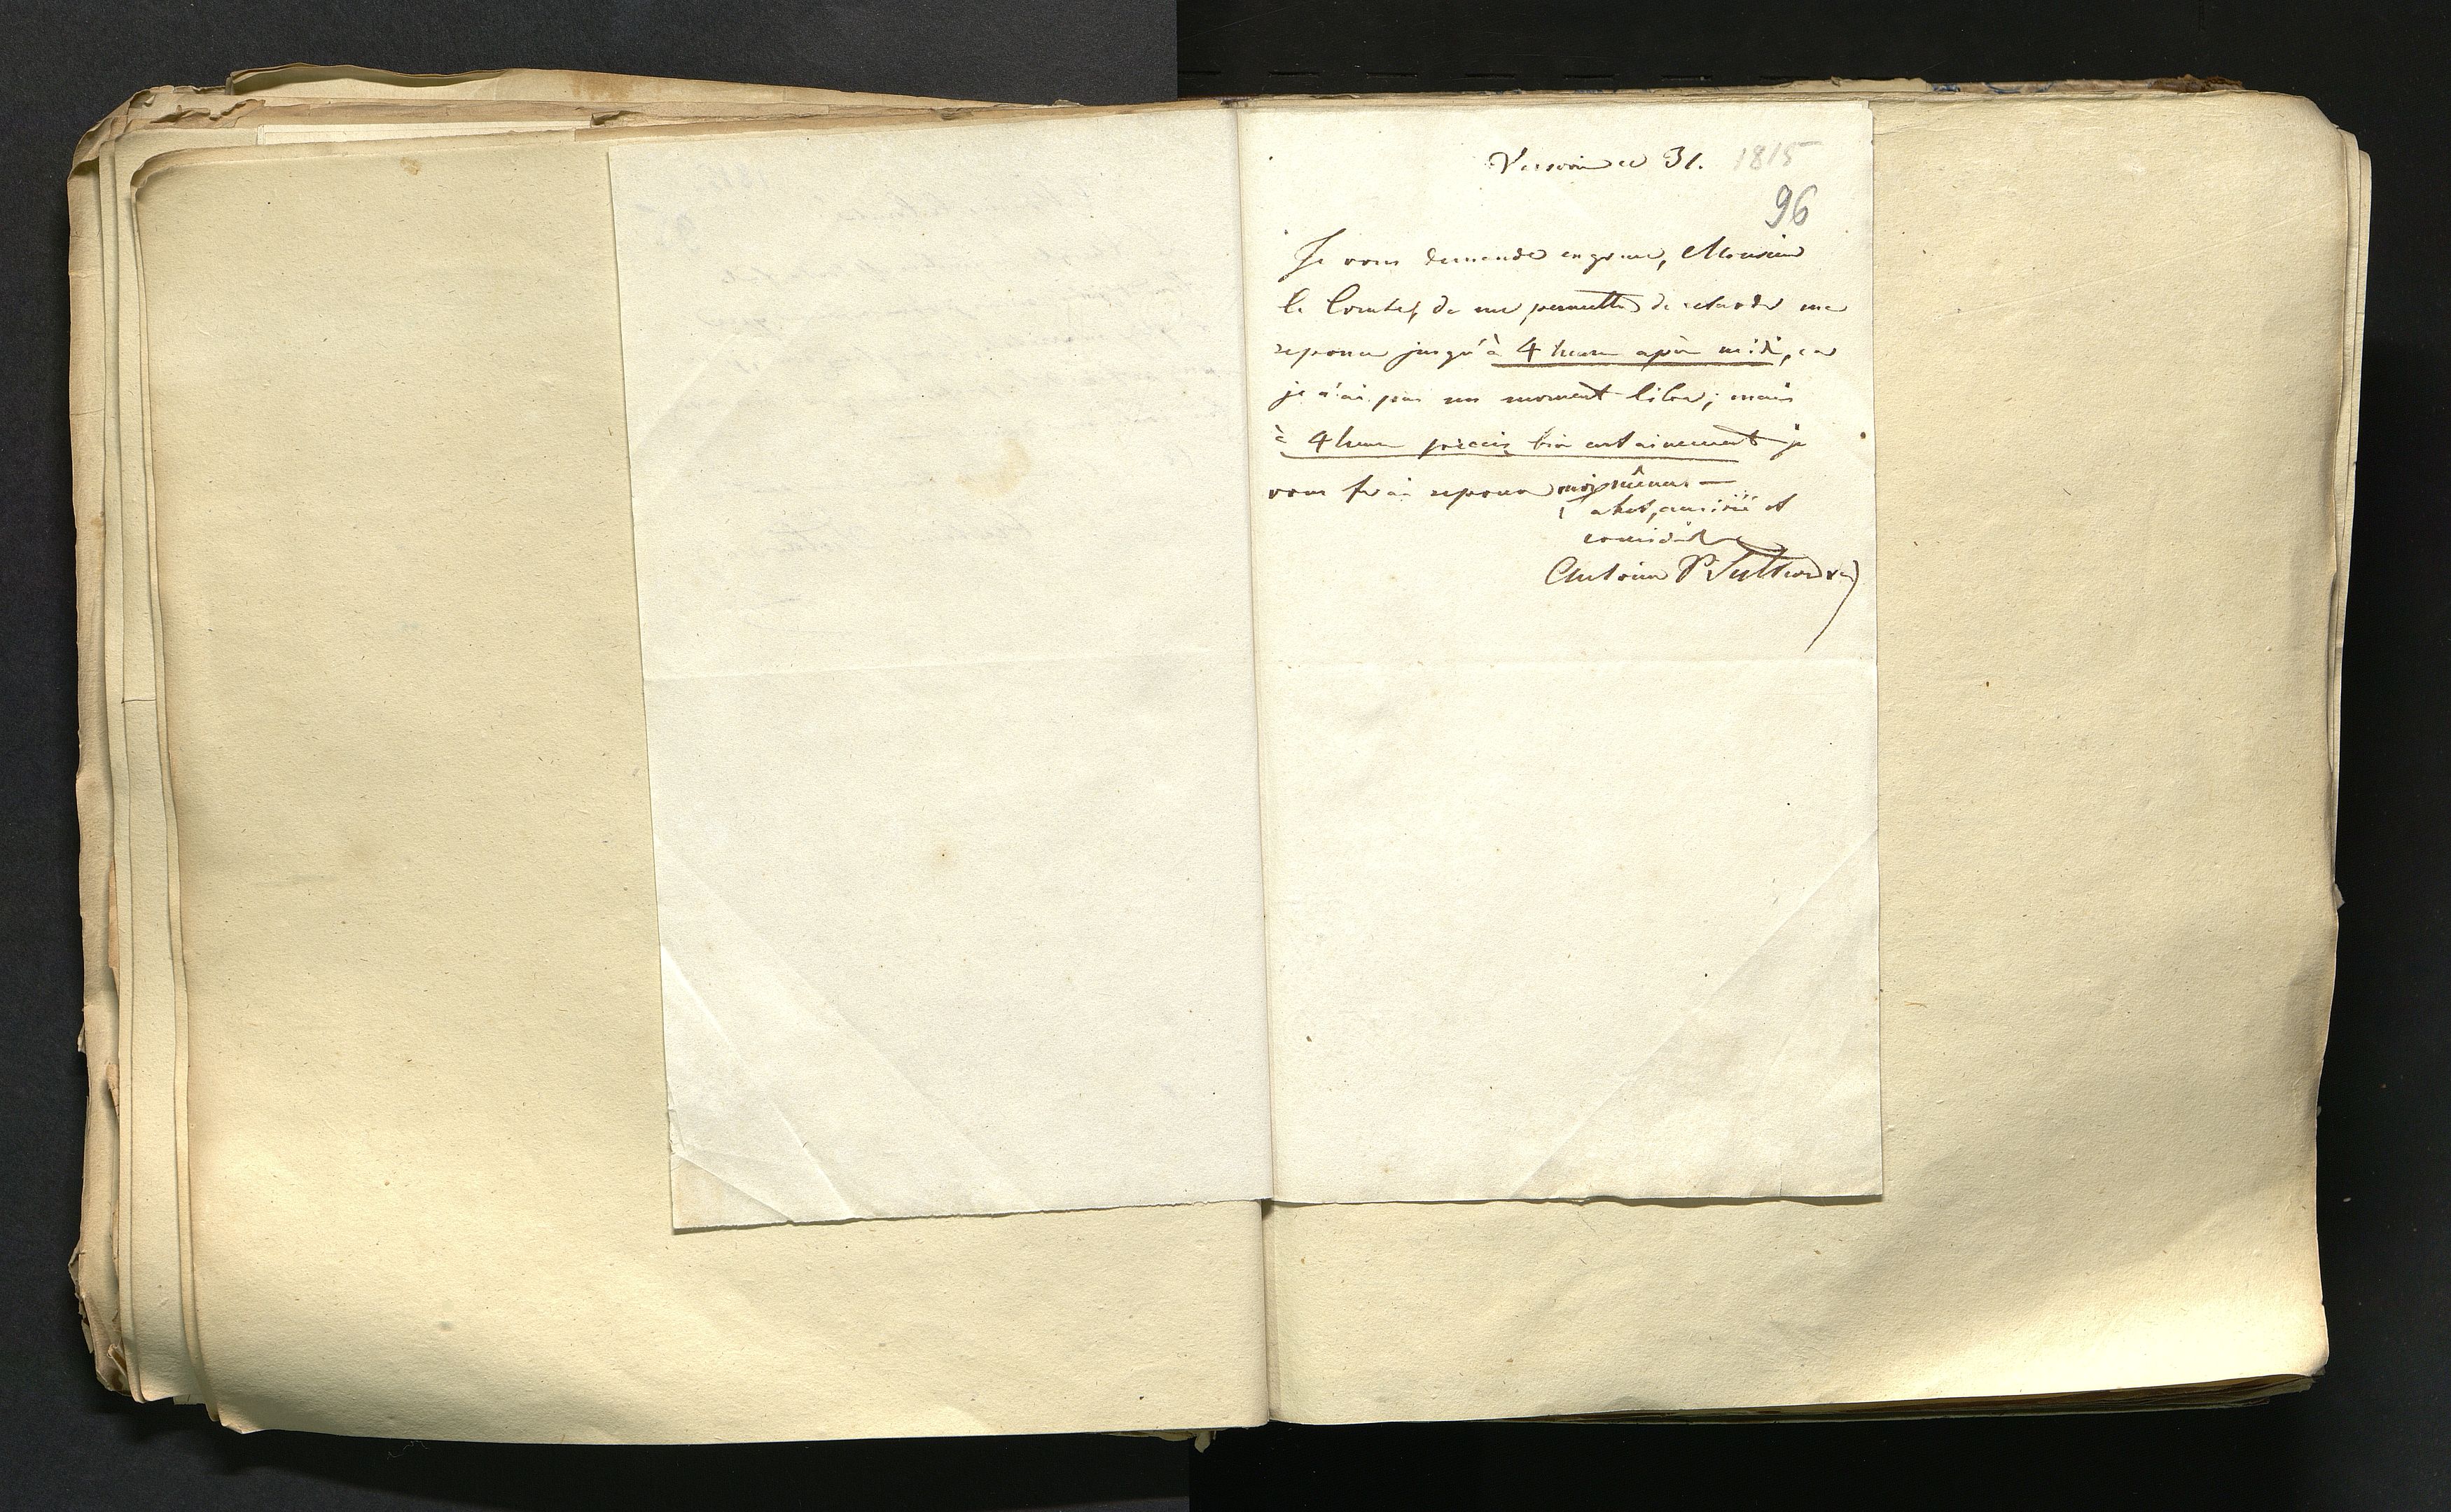 Versoix ce 31. 1815
96
Je vous demande en grace, Monsieur
le Comte, de me permettre de retarder ma
reponse jusqu'à 4 heures après midi, car
je n'ai pas un moment libre; mais
à 4 heures précises bien certainement je
vous ferai reponse moi même. —
amitié et
Antoine